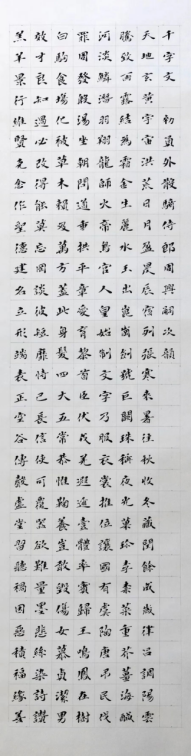 千字文 勅員外散騎侍郎周興嗣次韻
天地玄黃宇宙洪荒日月盈昃辰宿列張寒來暑往秋收冬藏閏餘成歲律呂調陽雲
騰致雨露結為霜金生麗水玉出崑岡劍號巨闕珠稱夜光果珍李柰菜重芥薑海鹹
河淡鱗潛羽翔龍師火帝鳥官人皇始制文字乃服衣裳推位讓國有虞陶唐弔民伐
罪周發殷湯坐朝問道垂拱平章愛育黎首臣伏戎羌遐邇壹體率賓歸王鳴鳳在樹
白駒食場化被草木賴及萬方蓋此身髮四大五常恭惟鞠養豈敢毀傷女慕貞潔男
效才良知過必改得能莫忘罔談彼短靡恃己長信使可覆器欲難量墨悲絲染詩讚
羔羊景行維賢克念作聖德建名立形端表正空谷傳聲虛堂習聽禍因惡積福緣善